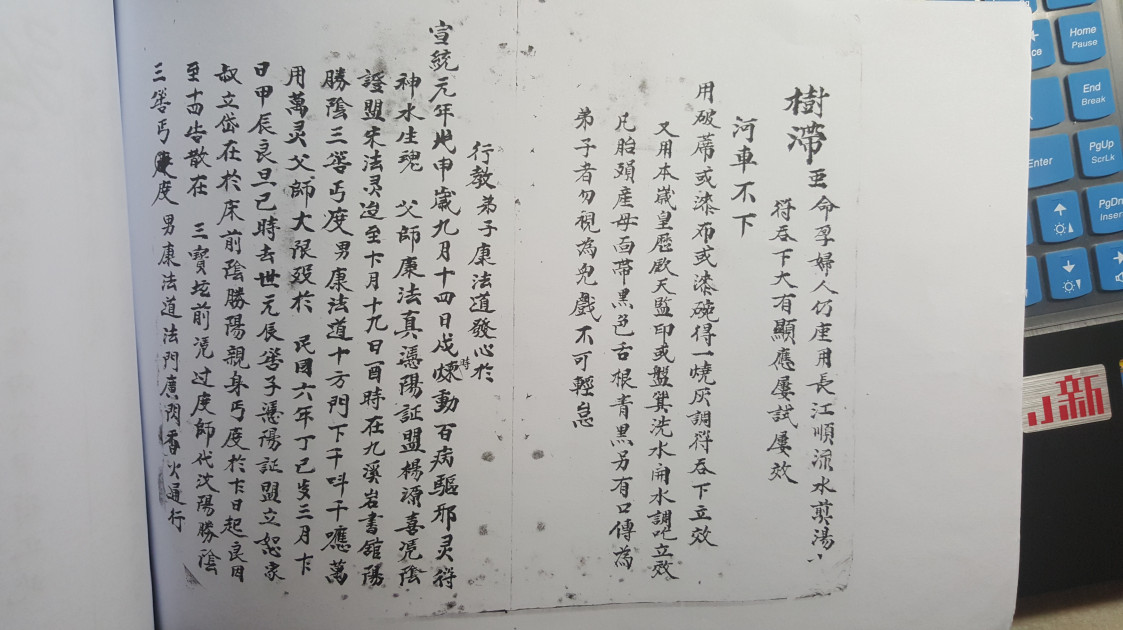 樹滯亞命孕婦人仍產用長江順流水煎湯
符吞下大有顯應屢試屢效
河車不下
用破蓆或漆布或漆碗得一燒灰調符吞下立效
又用本歲皇歷欽天監印或盤箕洗水開水調吃立效
凡胎頭產母面帶黑色舌根青黑另有口傳為
弟子者勿視為兒戲不可輕怠
行教弟子康法道發心於
宣統元年地申歲九月十四日戌時煉動百病驅邪灵符
神水生魂 父師康法真憑陽証盟楊源喜凭陰
證盟宋法灵迨至卞月十九日酉時在九溪岩書舘陽
勝陰三宻丐度男康法道十方門下千呌千應萬
用萬灵父師大限殁於 民囯六年丁巳歲三月卞
日甲辰良旦巳時去世元辰宻子憑陽証盟立恕家
叔立岱在於床前陰勝陽親身丐度於卞日起良因
至十四告散在 三寶坛前凭过度師代沈陽勝陰
三宻丐度男康法道法門廣開香火通行
Home
Pause
End
Break
Enter
PgUp
ScrLk
PgDn
Inser
新